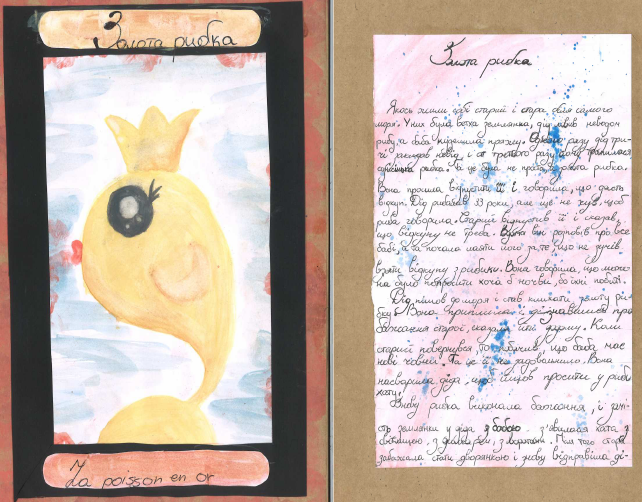 Золота рибка
La poisson en or
Золота рибка
Якось жили собі старий і стара, біля самого
моря. У них була ветха землянка, дід ловив неводом
рибу, а баба пряла пряжу. Одного разу дід три-
чі закидав невід, і от третього разу йому трапилася
рибка. Та це була не проста, а золота рибка.
Вона просила відпустити її і говорила, що дасть
відкуп. Дід рибалив 33 роки, але ще не чув, щоб
риба говорила. Старий відпустив її і сказав,
що відкупу не треба. Вдома він розповів про все
бабі, а та почала лаяти його за те, що не зумів
взяти відкупу з рибини. Вона говорила, що мож-
на було попросити хоча б ночви, бо їхні побиті.
Дід пішов до моря і став кликати золоту ри-
бку. Вона припливла і дізнавшися про
бажання старої, сказала йти додому. Коли
старий повернувся, то побачив, що баба має
нові ночви. Та це її не задовольнило. Вона
насварила діда, щоб пішов просити у рибки
хату.
Знову рибка виконала бажання, і замі-
сть землянки у діда з бабою з'явилася хата з
світлицею, з , з воротами. Після того стара
забажала стати дворянкою і знову відправила ді-